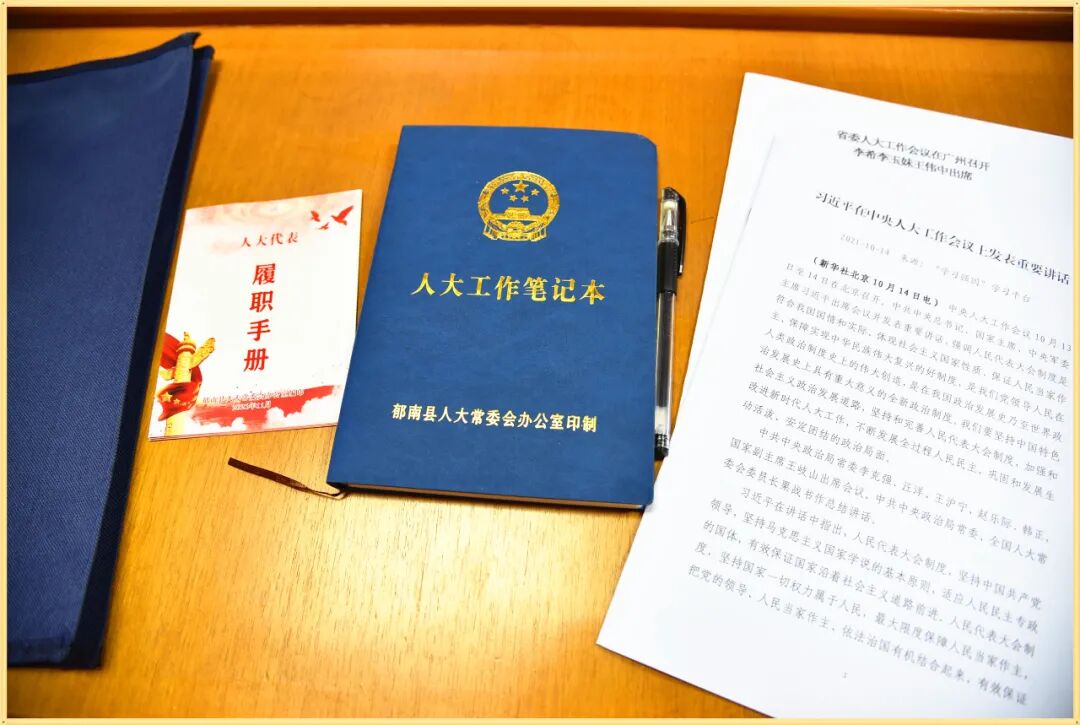 人大代表
履职手册
人大工作笔记本
郁南县人大常委会办公室印制
省委人大工作会议在广州召开
李希李玉妹王伟中出席
习近平在中央人大工作会议上发表重要讲话
2021-10-14 来源：“学习强国”学习平台
（新华社北京10月14日电） 中央人大工作会议10月13
日至14日在北京召开。中共中央总书记、国家主席、中央军委
主席习近平出席会议并发表重要讲话，强调人民代表大会制度是
符合我国国情和实际、体现社会主义国家性质、保证人民当家作
主、保障实现中华民族伟大复兴的好制度，是我们党领导人民在
人类政治制度史上的伟大创造，是在我国政治发展史乃至世界政
治发展史上具有重大意义的全新政治制度。我们要坚持中国特色
社会主义政治发展道路，坚持和完善人民代表大会制度，加强和
改进新时代人大工作，不断发展全过程人民民主，巩固和发展生
动活泼、安定团结的政治局面。
中共中央政治局常委李克强、汪洋、王沪宁、赵乐际、韩正，
国家副主席王岐山出席会议。中共中央政治局常委、全国人大常
委会委员长栗战书作总结讲话。
习近平在讲话中指出，人民代表大会制度，坚持中国共产党
领导，坚持马克思主义国家学说的基本原则，适应人民民主专政
的国体，有效保证国家沿着社会主义道路前进。人民代表大会制
度，坚持国家一切权力属于人民，最大限度保障人民当家作主，
把党的领导、人民当家作主、依法治国有机结合起来，有效保证